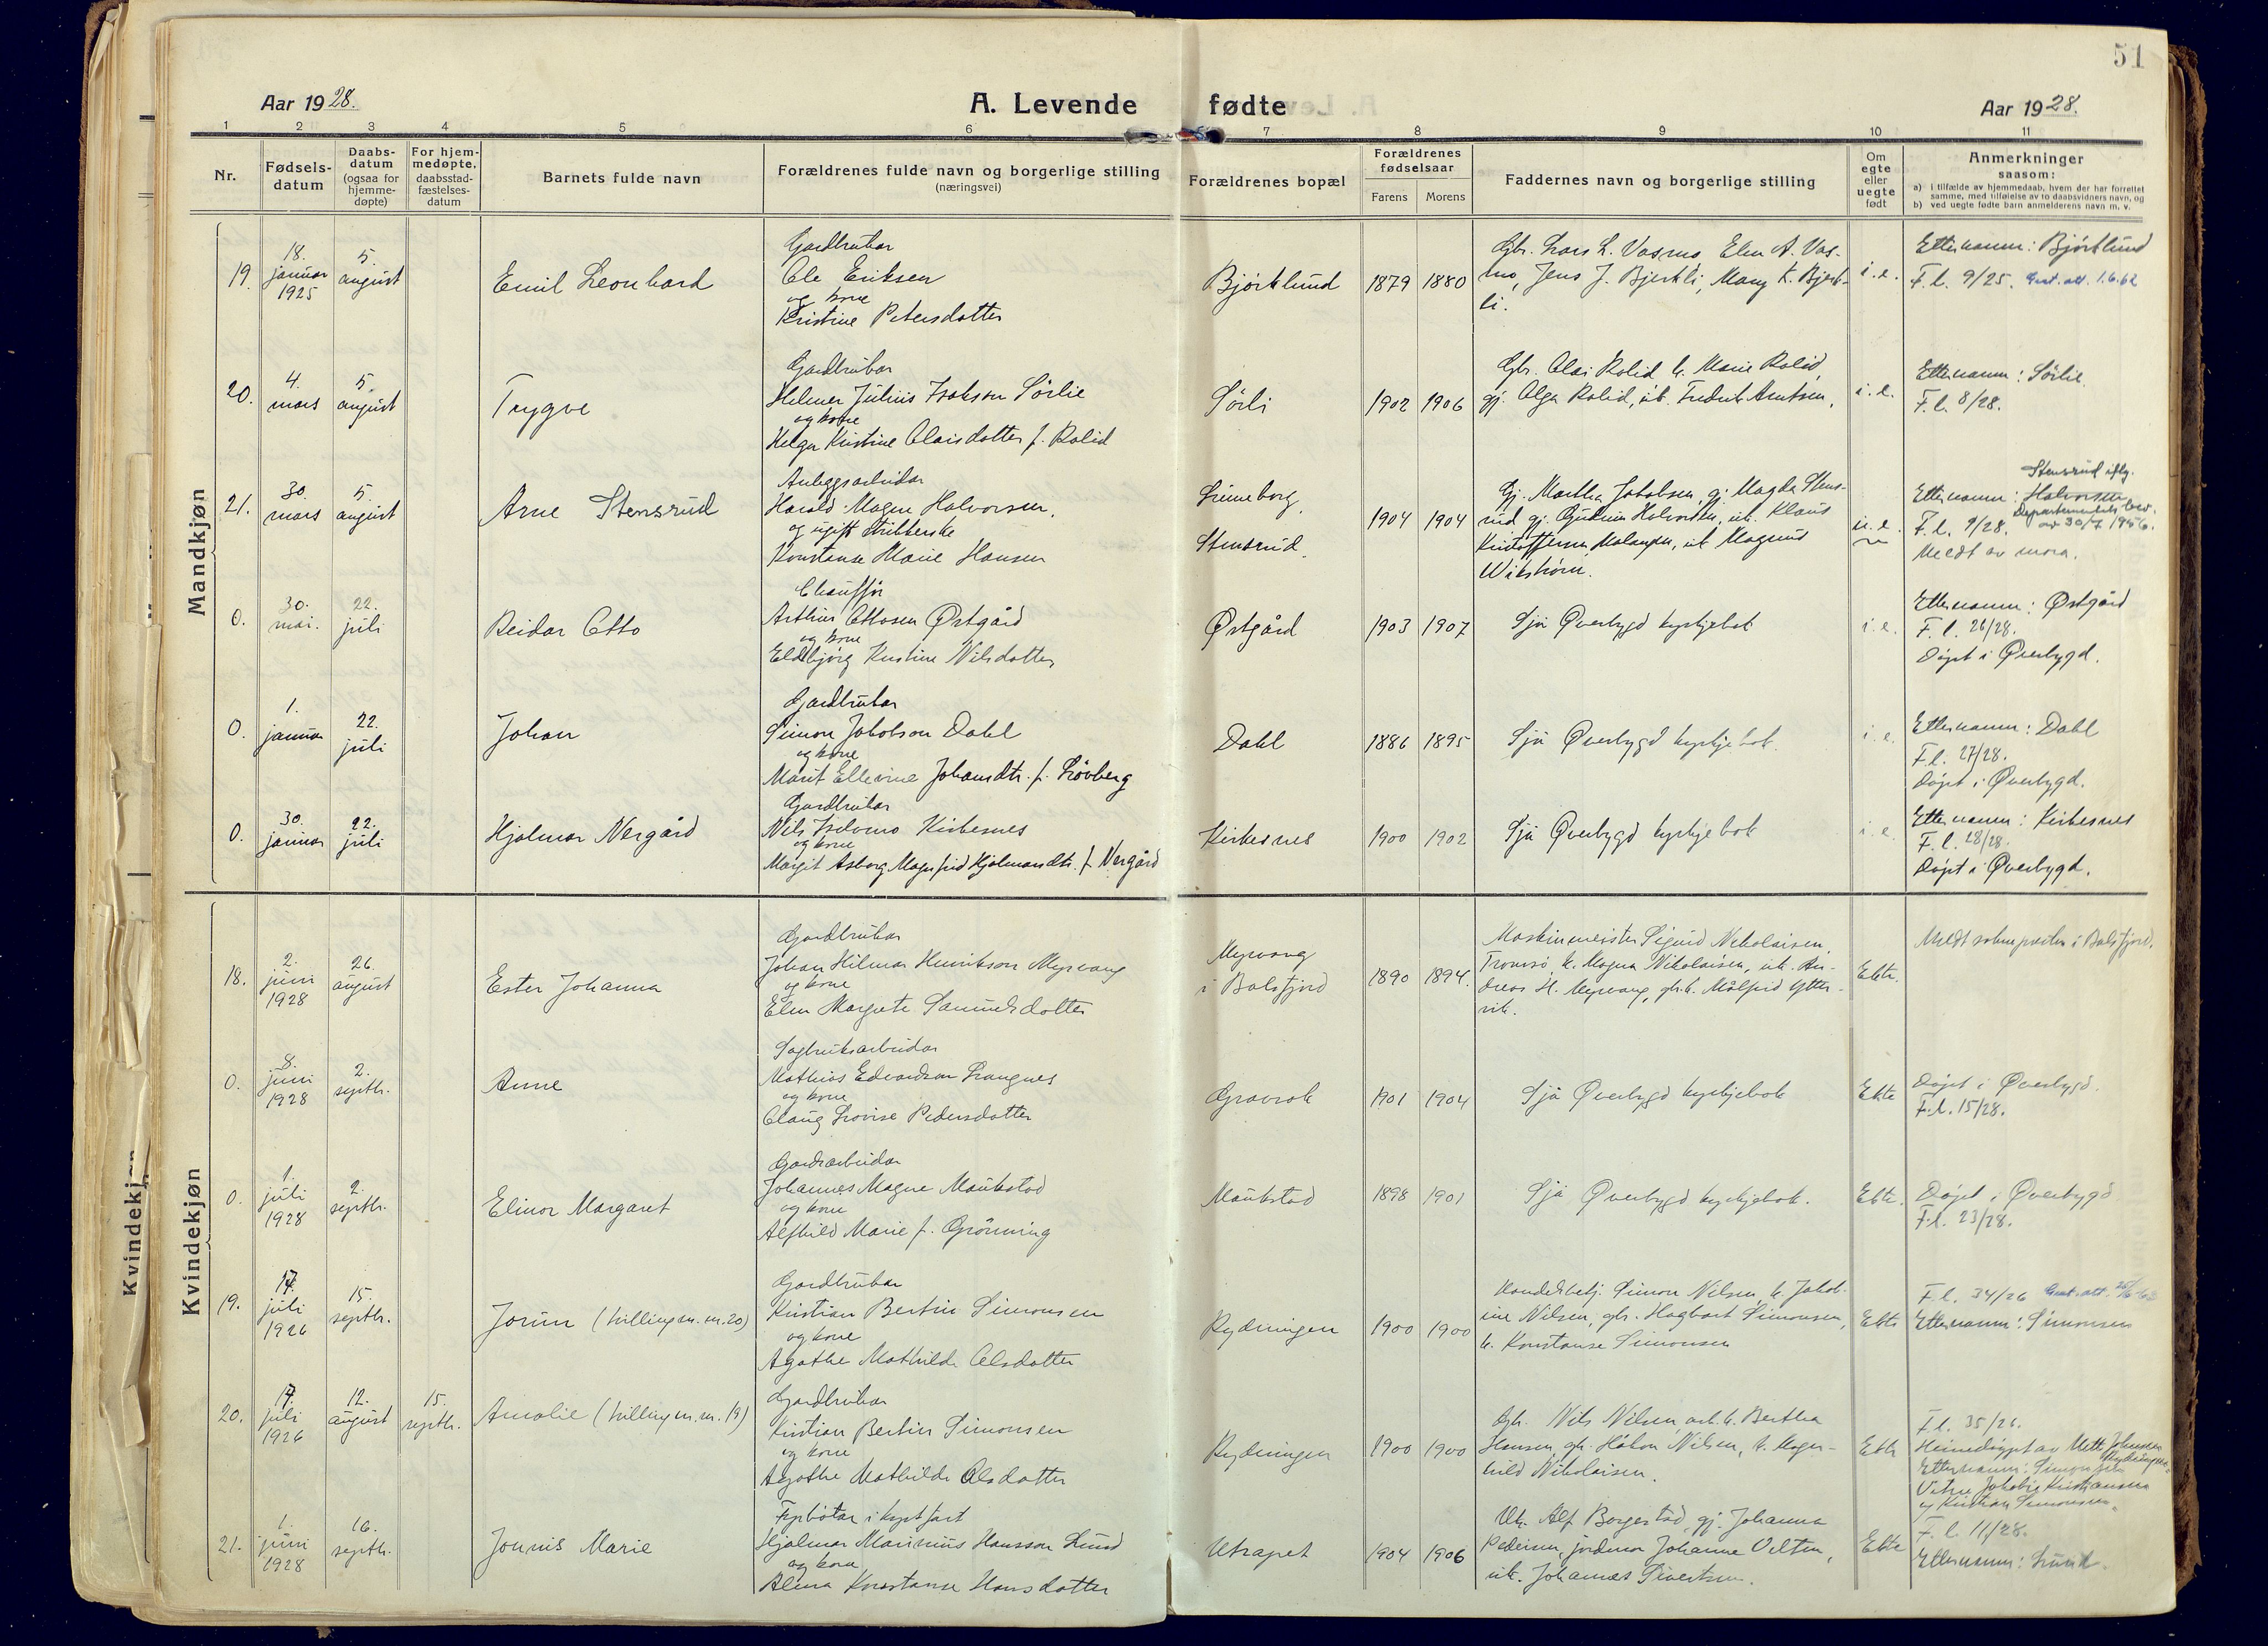 51
Aar 1928.
A. Levende fødte
Aar 1928.
1 2 3 4 5 6 7 8 9 10 11
Nr.
Fødsels-
datum
Daabs-
datum
(ogsaa for
hjemme-
døpte)
For hjem-
medøpte,
daabsstad-
fæstelses-
datum
Barnets fulde navn
Forældrenes fulde navn og borgerlige stilling
(næringsvei)
Forældrenes bopæl
Forældrenes
fødselsaar
Farens Morens
Faddernes navn og borgerlige stilling
Om
egte
eller
uegte
født
Anmerkninger
saasom:
a) i tilfælde av hjemmedaab, hvem der har forrettet
samme, med tilføielse av to daabsvidners navn, og
b) ved uegte fødte barn anmelderens navn m. v.
Mandkjøn
19.
18.
januar
1925
5.
august
Emil Leonhard
Gardbrukar
Ole Eriksen
og kone
Kristine Petersdatter
Bjørklund
1879 1880
Gbr. Lars L. Vasmo, Elen A. Vas-
mo, Jens J. Bjerkli, Mary K. Bjerk-
li.
i. e.
Etternamn: Bjørklund
F. l. 9/25. 1.6.62
20.
4.
mars
5.
august
Trygve
Gardbrukar
Helmer Julius Isaksen Sörlie
og kone
Helga Kristine Olaisdatter f. Rolid
Sörli
1902 1906
Gbr. Olai Rolid, k. Marie Rolid,
gj. Olga Rolid, uk. Fredrik Arntsen,
i. e.
Etternamn: Sörlie.
F. l. 8/28.
21.
30.
mars
5.
august
Arne Stensrud
Anleggsarbeidar
Harald Magne Halvorsen,
og ugift strikkerske
Konstanse Marie Hansen
Stensrud.
1904 1904
Gj. Martha Jakobsen, gj. Magda Stens-
rud gj. Gudrun Halvorsen, uk. Klaus
Kristoffersen Malangen, uk. Magnus
Wikström.
u. e.
Stensrud iflg.
Etternamn: Halvorsen
Departementets brev
av 30/7 1956.
F. l. 9/28.
Meldt av mora.
0.
30.
mai.
22.
juli
Reidar Otto
Chauffør
Arthur Ottosen Østgård
og kone
Eldbjørg Kristine Nilsdatter
Østgård
1903 1907
Sjå Øverbygd kyrkjebok
i. e.
Etternamn: Østgård
F. l. 26/28.
Döpt i Øverbygd.
0.
1.
januar
22.
juli
Johan
Gardbrukar
Simon Jakobson Dahl
og kone
Marit Ellevine Johansdtr. f. Lövberg
Dahl
1886 1895
Sjå Øverbygd kyrkjebok.
i. e.
Etternamn: Dahl
F. l. 27/28.
Döpt i Øverbygd.
0.
30.
januar
22.
juli
Hjalmar Nergård
Gardbrukar
Nils Kirkesnes
og kone
Margit Asborg Magnfrid Hjalmarsdtr. f. Nergård
Kirkesnes
1900 1902
Sjå Øverbygd kyrkjebok
i. e.
Etternamn: Kirkesnes
F. l. 28/28.
Döpt i Øverbygd.
Kvindekjøn
18.
2.
juni
1928
26.
august
Ester Johanna
Gardbrukar
Johan Hilmar Henrikson Myrvang
og kone
Elen Margrete Samuelsdotter
Myrvang
i Balsfjord
1890 1894.
Maskinmeister Sigurd Nikolaisen,
Tromsö, k. Magna Nikolaisen, uk. An-
dreas H. Myrvang, gk. k. Målfrid Ytter-
vik.
Ekte.
Meldt soknepresten i Balsfjord.
0.
8.
juni
1928
2.
septbr.
Anne
Sagbruksarbeidar
Mathias Edvardsen Langnes
og kone
Olaug Lovise Pedersdatter
Gravrok
1901 1904
Sjå Øverbygd kyrkjebok
Ekte
Döpt i Øverbygd.
F. l. 15/28.
0.
1.
juli
1928
2.
septbr.
Elinor Margaret
Gardsarbeidar
Johannes Magne Maukstad
og kone
Alfhild Marie f. Grönning
Maukstad
1898 1901
Sjå Øverbygd kyrkjebok.
Ekte.
Döpt i Øverbygd
F. l. 23/28.
19.
juli
1926
15.
septbr.
Jorun (tvilling m. nr. 20)
Gardbrukar
Kristian Bertin Simonsen
og kone
Agathe Mathilde Olsdatter
Rydningen
1900 1900
Handelsbetj. Simon Nilsen, k. Jakob-
ine Nilsen, gbr. Hagbart Simonsen,
k. Konstanse Simonsen
Ekte
F. l. 34/26
Etternamn: Simonsen
20.
juli
1926
12.
august
15.
septbr.
Amalie (tvilling m. nr. 19)
Gardbrukar
Kristian Bertin Simonsen
og kone
Agathe Mathilde Olsdatter
Rydningen
1900 1900
Gbr. Nils Nilsen, k. Bertha
Hansen, gbr. Håkon Nilsen, k. Magn-
hild Nikolaisen.
Ekte
F. l. 35/26.
Heimedöypt av Mette Johnsen
Rydningen.
Etternamn: Simonsen
Vitne Jakobie Kristiansen
og Kristian Simonsen.
21.
1.
juni
1928
16.
septbr.
Jounis Marie
Fyrbötar i kystfart
Hjalmar Marinius Hansson Lund
og kone
Alma Konstanse Hansdatter
1904 1906
Uk. Alf Borgestad, gj. Johanna
Pedersen, jordmor Johanne Velten,
uk. Johannes Sivertsen.
Ekte
F. l. 11/28.
Etternamn: Lund.
Kvindekjøn